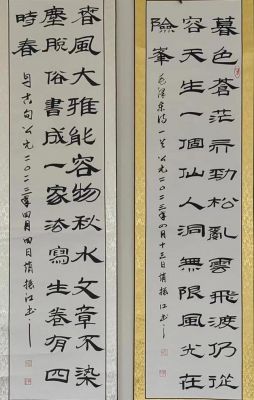 暮色蒼茫看勁松亂雲飛渡仍從
容天生一個仙人洞無限風光在
險峯
毛澤東詩一首公元二〇二三年四月十三日振江書
春風大雅能容物秋水文章不染
塵脱俗書成一家法寫生卷有四
時春
古句公元二〇二三年四月四日振江書